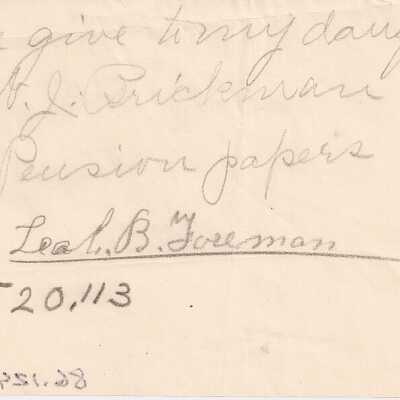 give to my daug
A. J. Brickman
Pension papers
Leah. B. Foreman
20,113
86.129